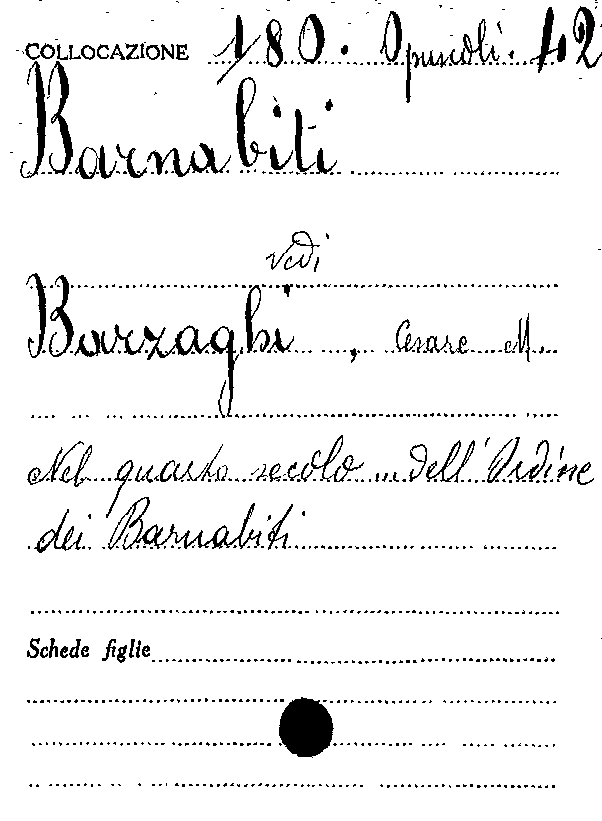 COLLOCAZIONE 180. Opuscoli. 42
Barnabiti
vedi
Barzaghi, Cesare M.
Nel quarto secolo ... dell'Ordine
dei Barnabiti
Schede figlie